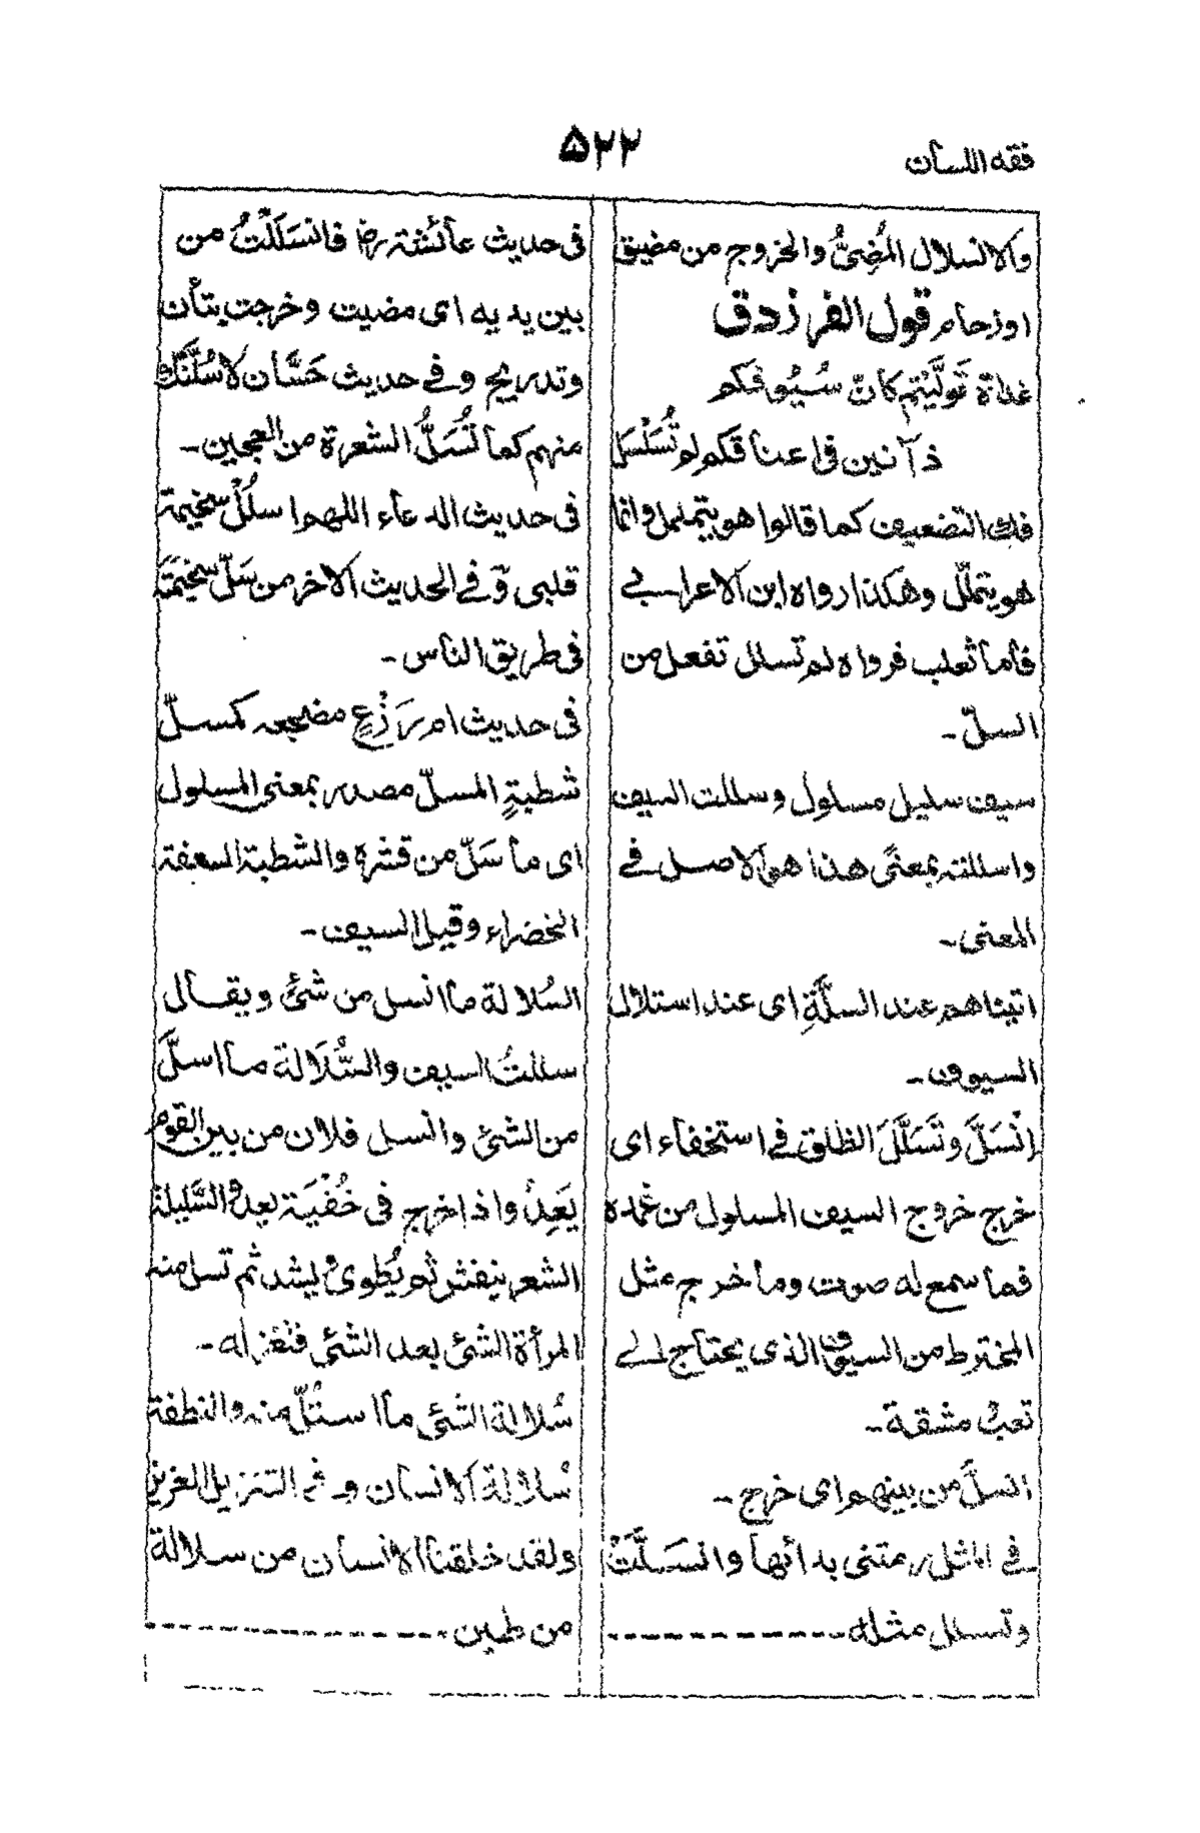 فقه اللسان
۵۲۲
والانسلال المُضِیُّ والخروج من مضیق
اوزحام قول الفرزدق
غداة تَولَّیْتم کانّ سُیُوفکم
ذآنین فی اعناقکم لم تُسَلْسَل
فك التضعیف کما قالوا هو یتململ وانما
هو یتملّل وهکذا رواه ابن الاعرابی
فاما ثعلب فرواه لم تسلل تفعل من
السلّ۔
سیف سلیل مسلول وسللت السیف
واسللته بمعنًی هذا هو الاصل فی
المعنی۔
اتیناهم عند السلَّةِ ای عند استلال
السیوف۔
اِنْسَلَّ وتَسَلَّلَ انطلق فی استخفاء ای
خرج خروج السیف المسلول من غمده
فما سمع له صوت وما خرج مثل
المخترط من السیوف الذی یحتاج الی
تعب ومشقة۔
انسلّ من بینهم ای خرج۔
فی المثل رمتنی بدائها وانسَلَّتْ
وتسلل مثله
فی حدیث عائشة رض فانسَلَلْتُ من
بین یدیه ای مضیت وخرجت بتأن
وتدریج وفی حدیث حَسَّان لاَسُلَّنَّك
منهم کما تُسَلُّ الشعرة من العجین۔
فی حدیث الدعاء اللهم اسلُلْ سخیمة
قلبی وّ فی الحدیث الاخر من سَلّ سخیمَتَه
فی طریق الناس۔
فی حدیث ام زَرْعٍ مضجعه کمسلّ
شطبةٍ المسلّ مصدر بمعنی المسلول
ای ما سَلّ من قشرة والشطبة السعفة
الخضراء وقیل السیف۔
السُلالة ما انسل من شئ ویقال
سللتُ السیف والسُّلَالة ما اسلَّ
من الشئ وانسل فلان من بین القوم
یَعدُ واذا خرج فی خُفْیَة یعدو السَّلیلة
الشعر ینفش ثم یُطوی ویشد ثم تسل منه
المرأة الشئ بعد الشئ فتغزله۔
سُلالة الشئ ما استُلّ منه والنطفة
سُلالة الانسان وفی التنزیل العزیز
ولقد خلقنا الانسان من سلالة
من طین